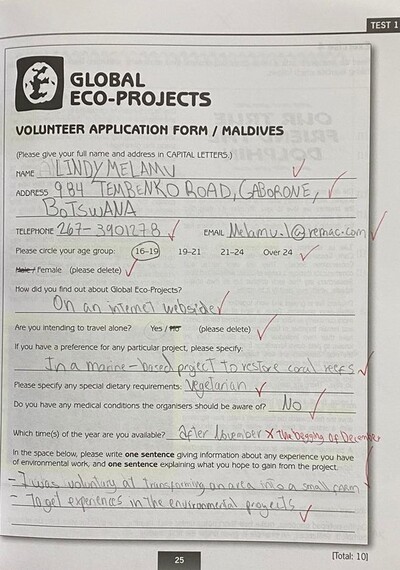 TEST 1
GLOBAL
ECO-PROJECTS
VOLUNTEER APPLICATION FORM / MALDIVES
(Please give your full name and address in CAPITAL LETTERS.)
NAME LINDY MELAMU
ADDRESS 984 TEMBENKO ROAD, GABORONE,
BOTSWANA
TELEPHONE 267-3901278 EMAIL Melamu.l@remac.com
Please circle your age group: 16–19 19–21 21–24 Over 24
Male / Female (please delete)
How did you find out about Global Eco-Projects?
On an internet webside
Are you intending to travel alone? Yes / No (please delete)
If you have a preference for any particular project, please specify:
In a marine-based project to restore coral reefs
Please specify any special dietary requirements: Vegetarian
Do you have any medical conditions the organisers should be aware of? No
Which time(s) of the year are you available? After November X The begging of December
In the space below, please write one sentence giving information about any experience you have
of environmental work, and one sentence explaining what you hope to gain from the project.
- I was voluntary at transforming an area into a small farm
- To get experiences in the environmental proyects
25
[Total: 10]